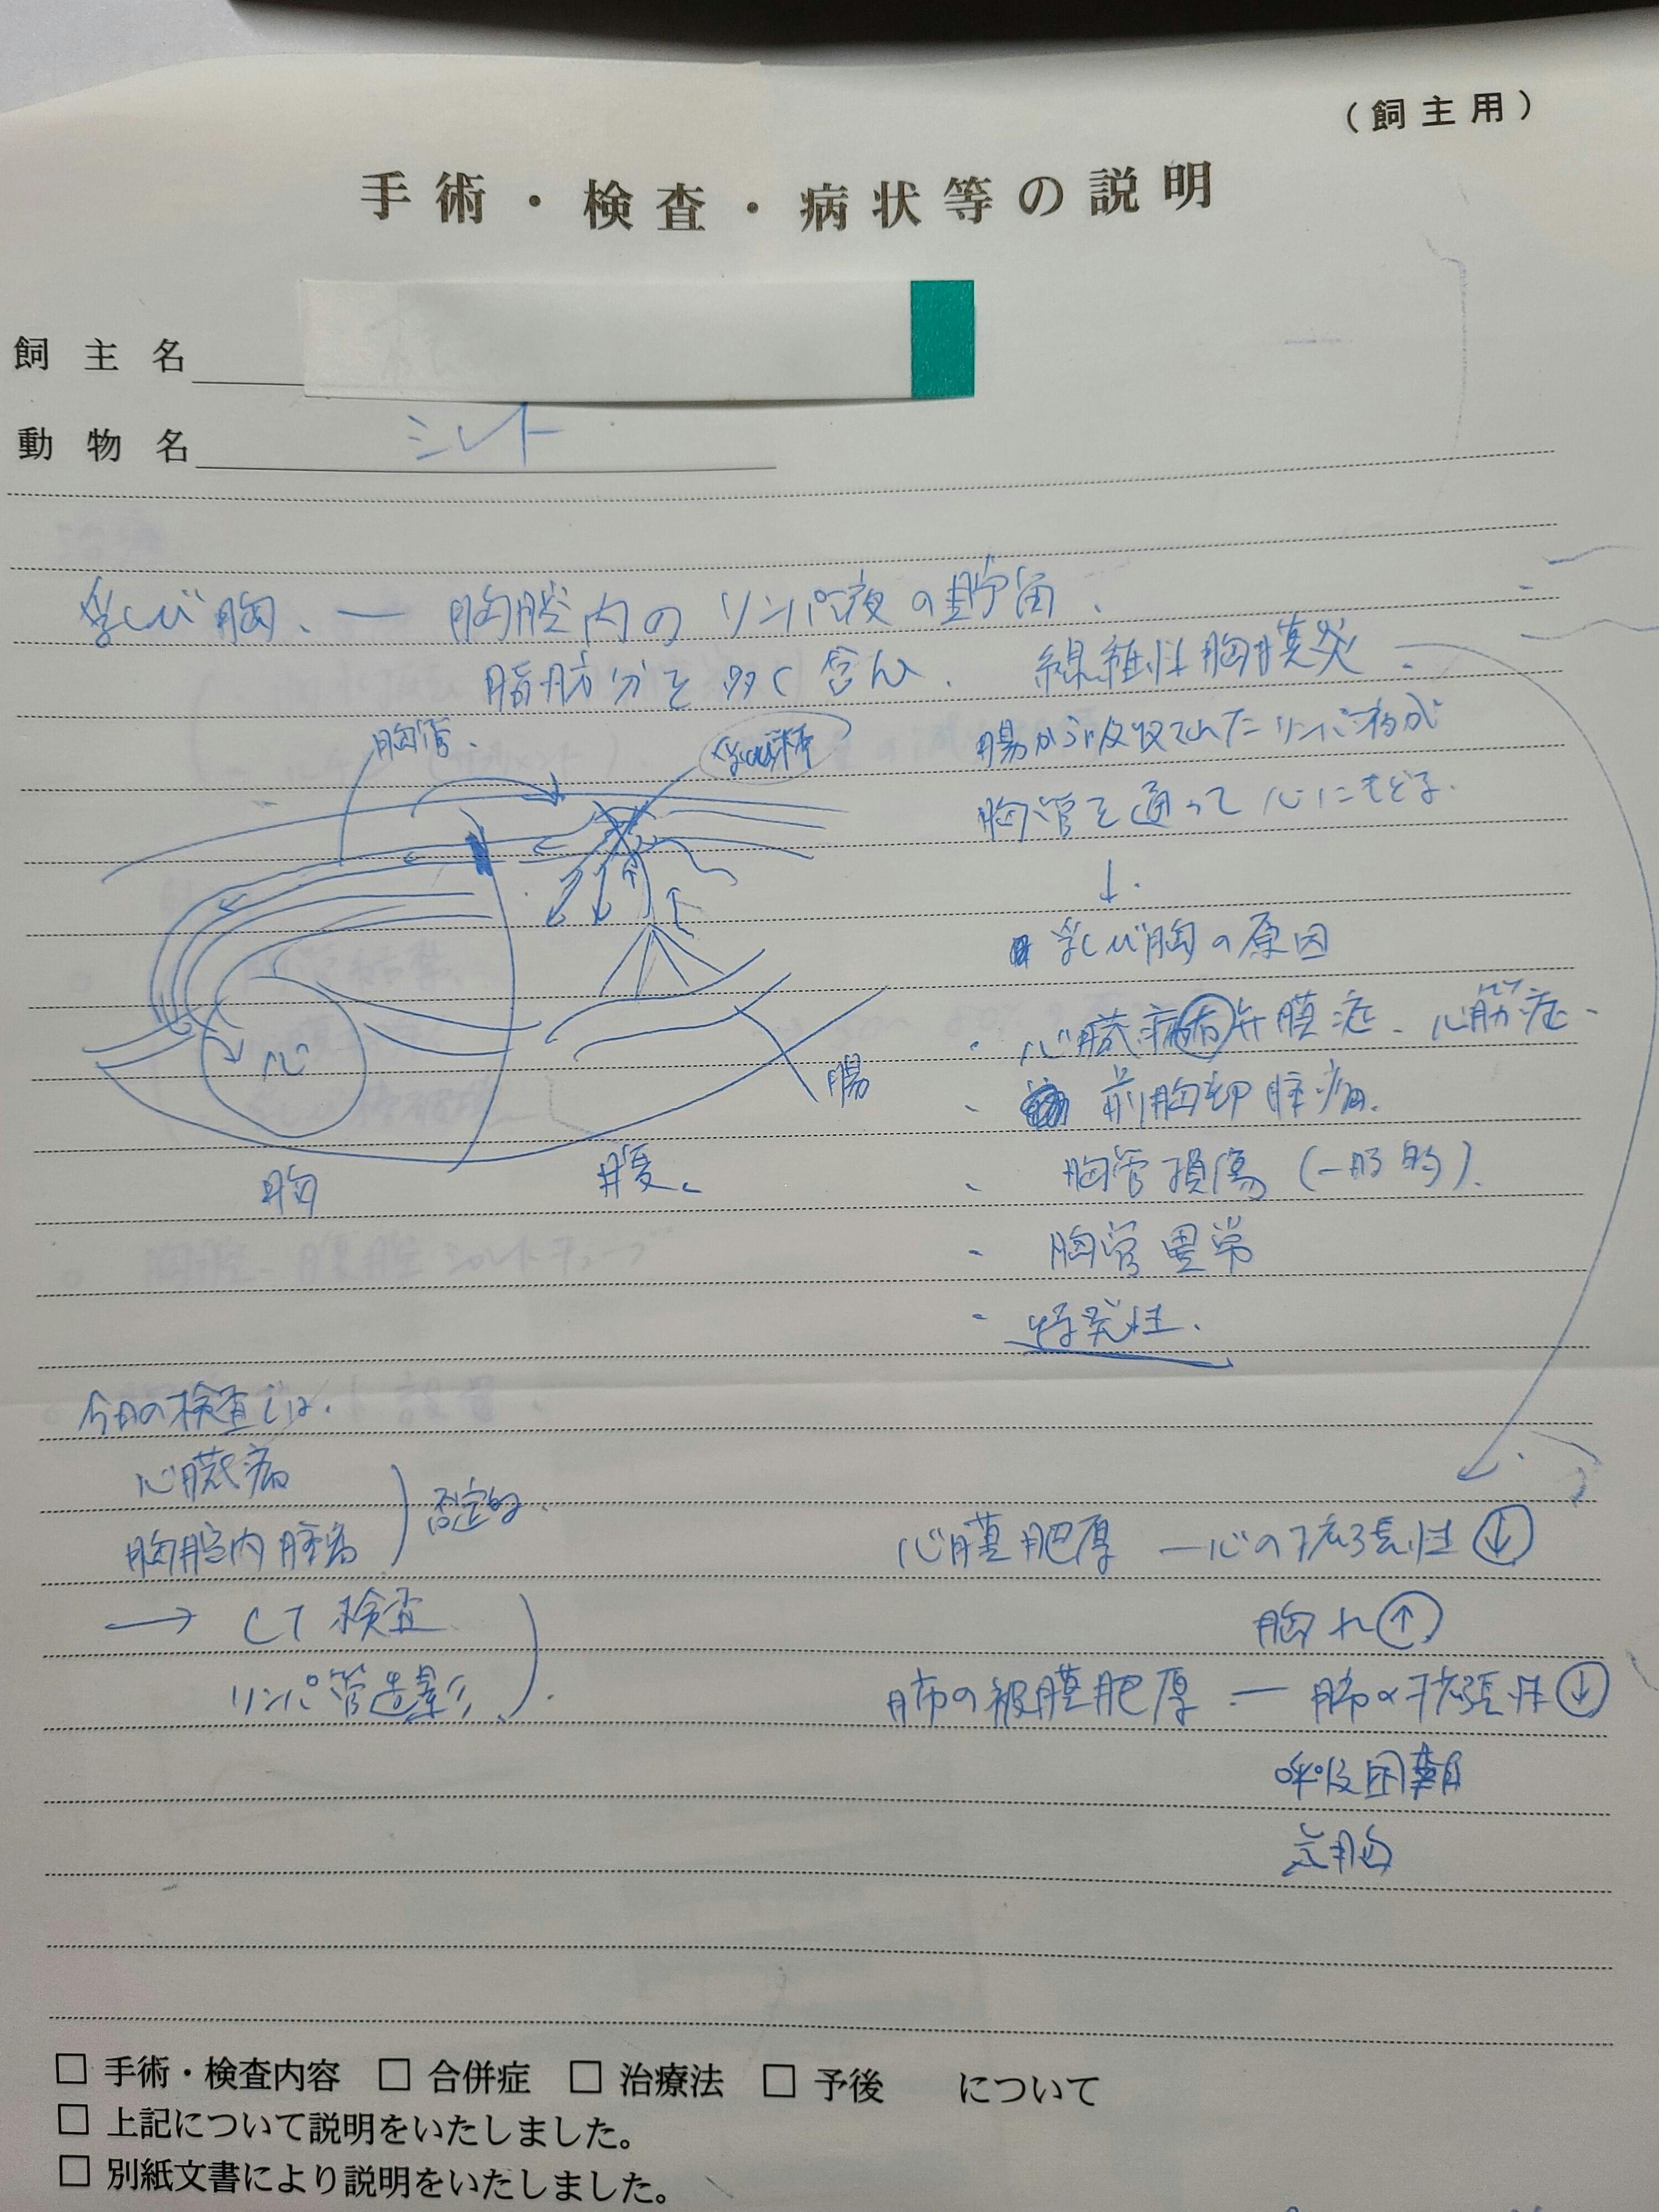 (飼主用)
手術・検査・病状等の説明
飼主名
動物名 ミレト
乳び胸、— 胸腔内のリンパ液の貯留、
脂肪分を多く含む、 線維性胸膜炎
胸管、 乳び槽
腸から吸収されたリンパ液が
胸管を通って心にもどる、
↓
乳び胸の原因
・心臓病 弁膜症、心筋症、
・前胸部腫瘤、
・胸管損傷(一般的)、
・胸管異常
・特発性、
心
腸
胸
腹
今日の検査では、
心臓病
胸腔内腫瘤
否定的、
→ CT検査
リンパ管造影
心膜肥厚 — 心の拡張性 ↓
胸水 ↑
肺の被膜肥厚 — 肺の拡張性 ↓
呼吸困難
気胸
□ 手術・検査内容 □ 合併症 □ 治療法 □ 予後 について
□ 上記について説明をいたしました。
□ 別紙文書により説明をいたしました。